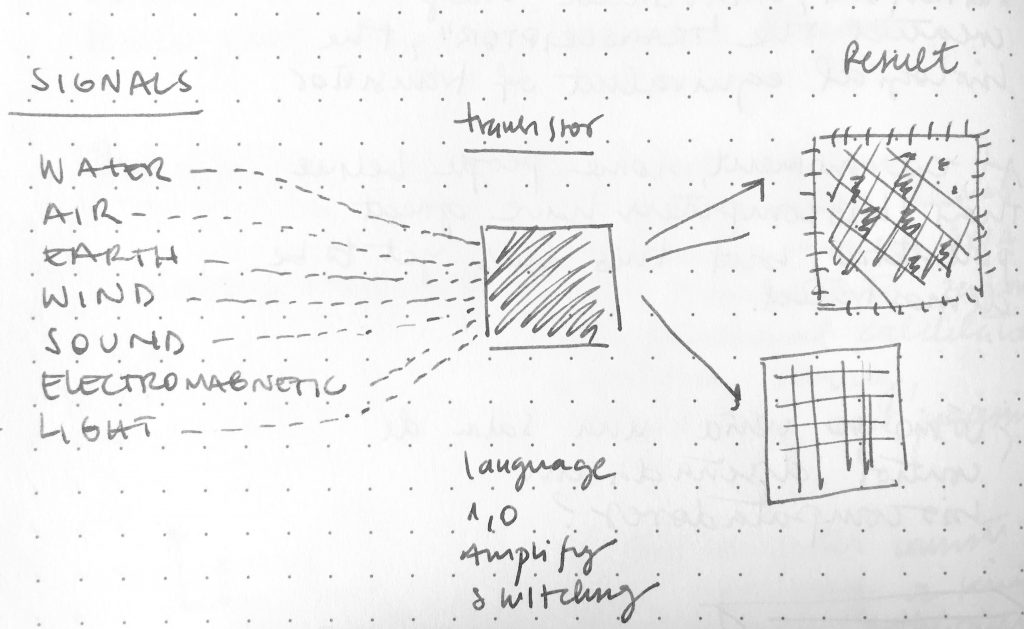 Result
SIGNALS
transistor
WATER
AIR
EARTH
WIND
SOUND
ELECTROMAGNETIC
LIGHT
language
1,0
Amplify
switching